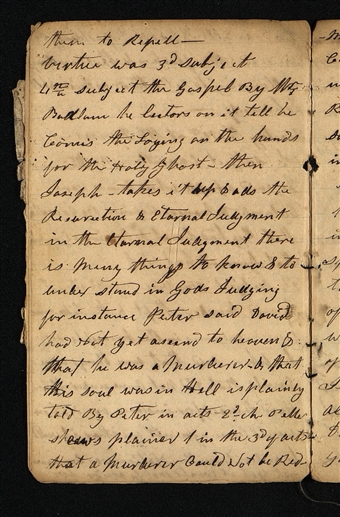 them to Repell—
Virtue was 3d Subject
4th subject the Gospel By Mr
he lectors on it tell he
Comis the Loying on the hands
for the Holy Ghost – then
Joseph – takes it up & ads the
Reserection & Etarnal Judgment
in the Eternal Judgment there
is Many things to know & to
under stand in Gods Judging
for instance Peter said David
had Not yet ascend to heaven &
that he was a Murherer & that
this soul was in Hell is plainly
told By Peter in acts 2d ch
shows plainer in the 3d of acts
that a Murherer Could Not be Red